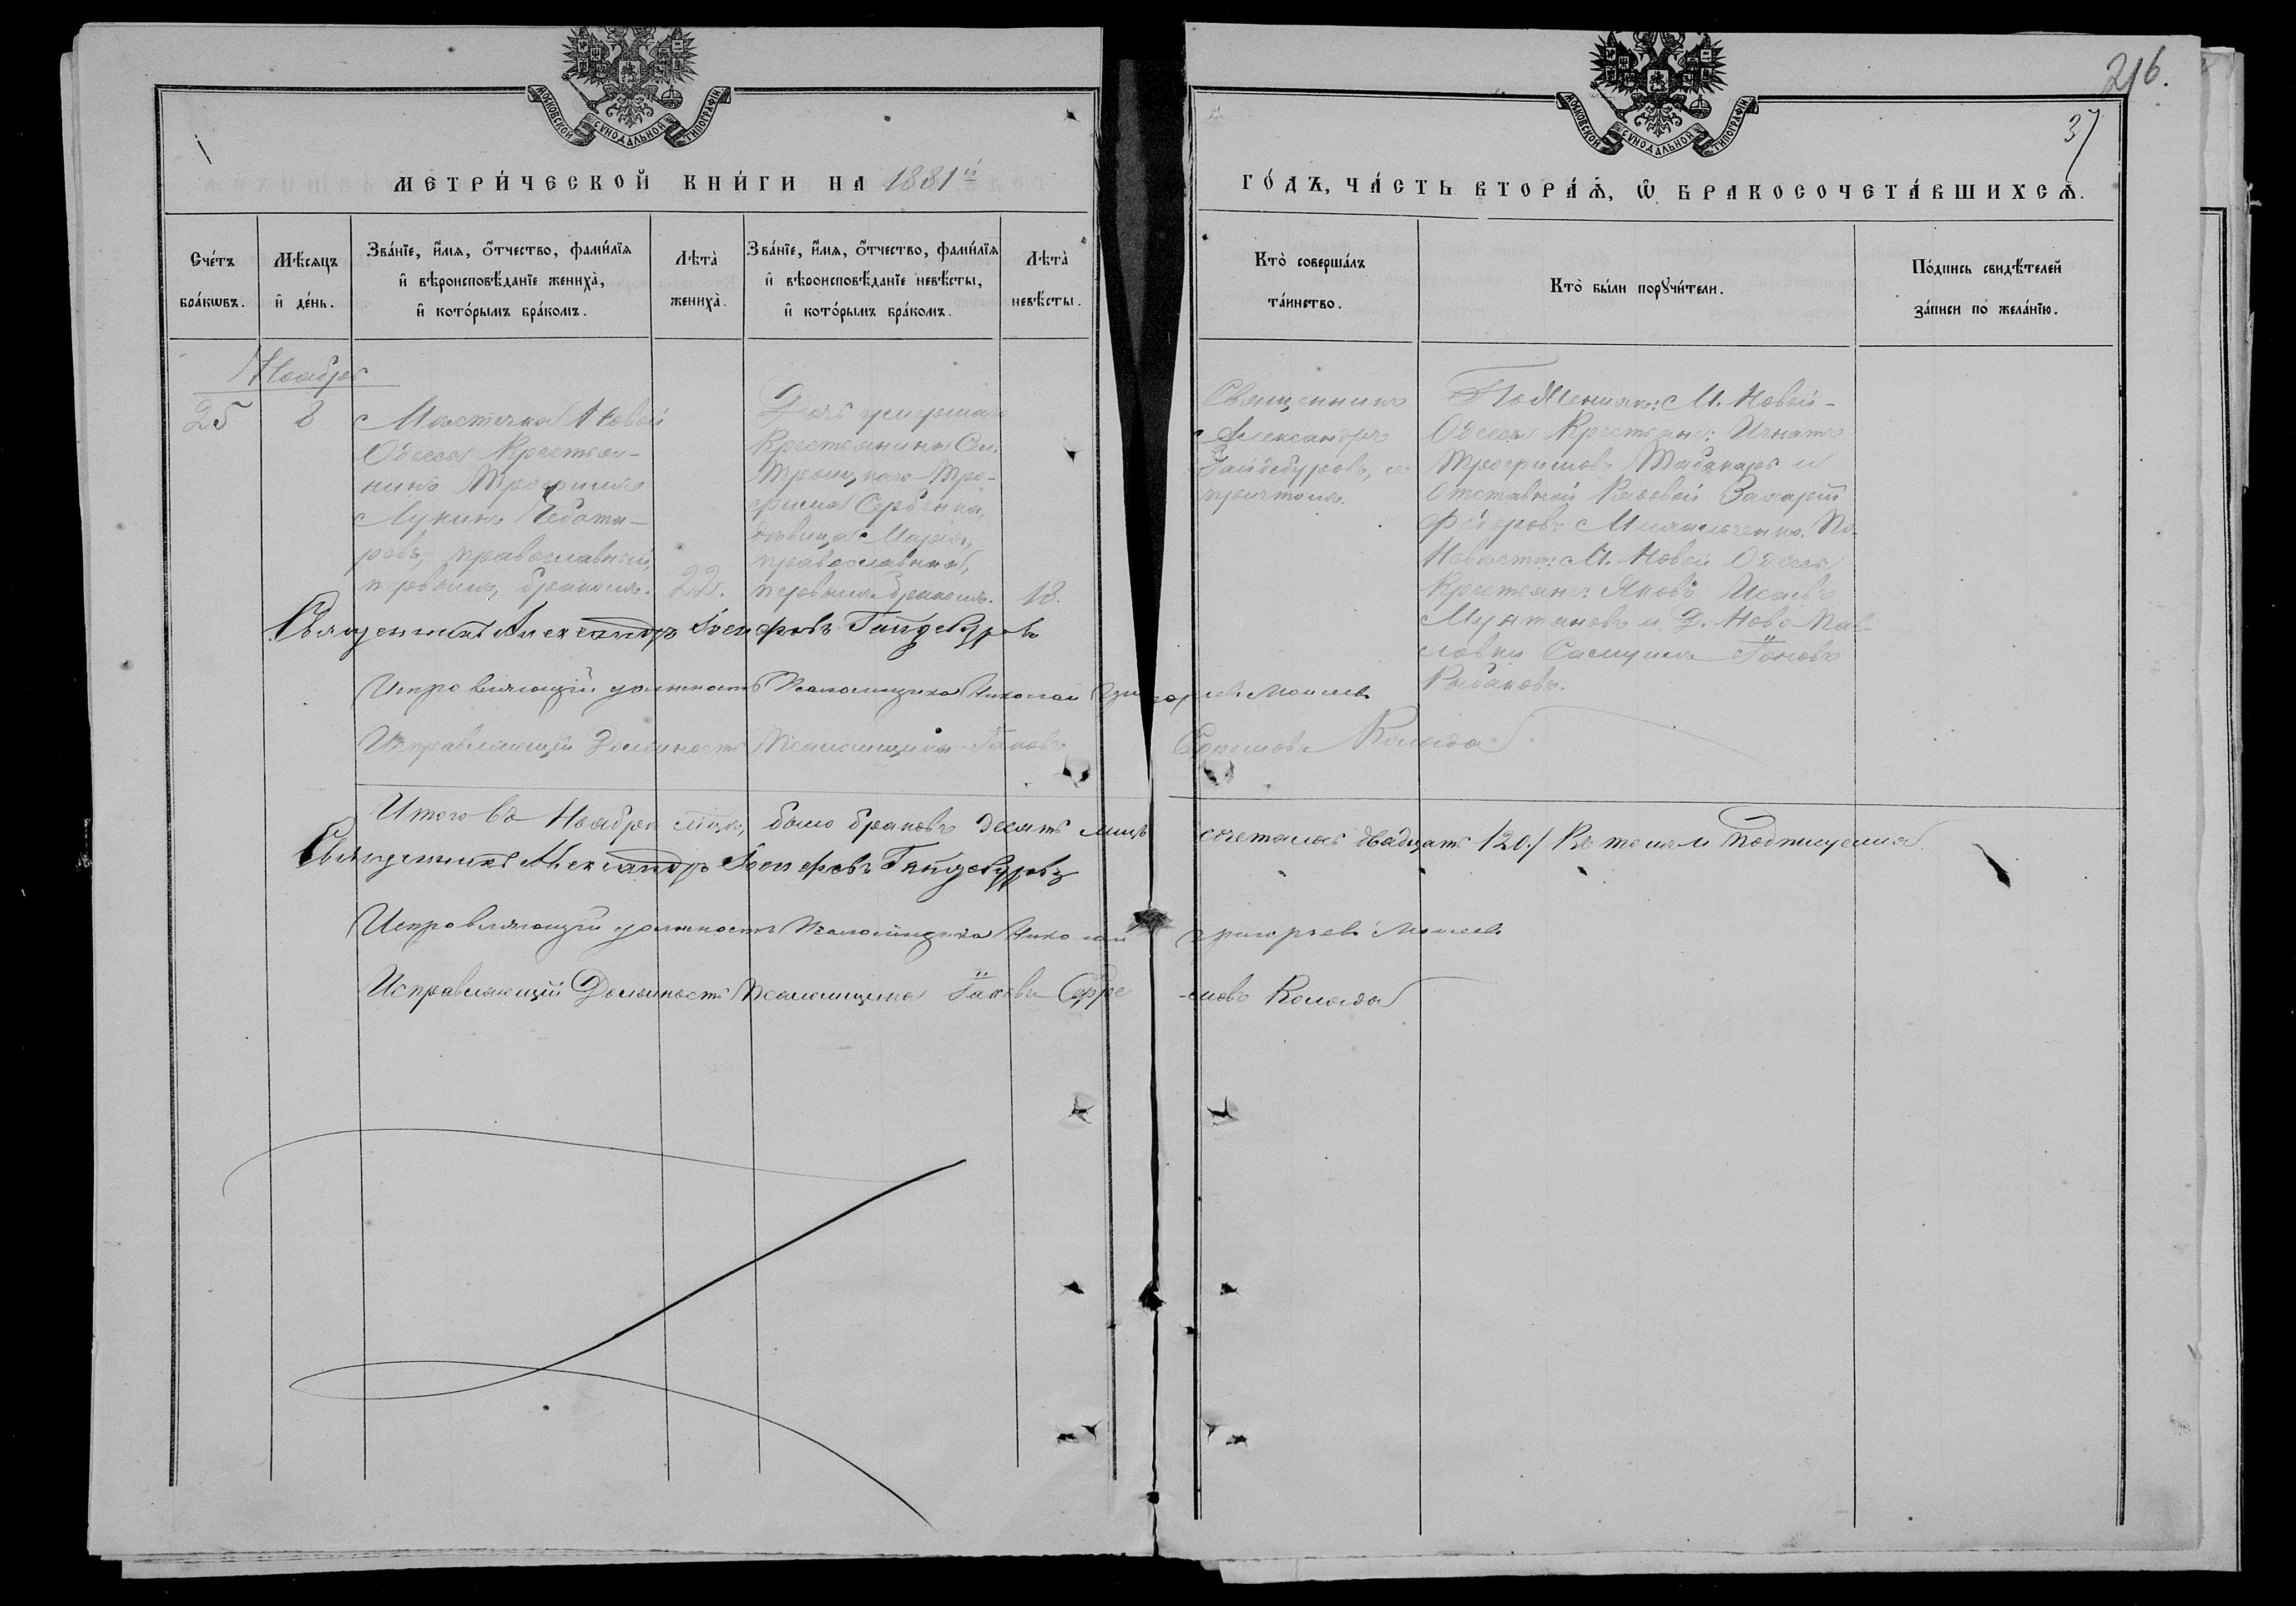 216.
37
МОСКОВСКОЙ СѴНОДАЛЬНОЙ ТИПОГРАФІИ
МОСКОВСКОЙ СѴНОДАЛЬНОЙ ТИПОГРАФІИ
МЕТРИ́ЧЕСКОЙ КНИ́ГИ НА 1881й
ГО́ДЪ, ЧА́СТЬ ВТОРА́Ѧ, Ѡ БРАКОСОЧЕТА́ВШИХСѦ.
Сче́тъ
бра́кѡвъ.
Мѣ́сяцъ
и҆ де́нь.
Зва́нїе, и҆́мя, ѻ҆́тчество, фами́лїя
и҆ вѣроисповѣ́данїе жениха̀,
и҆ кото́рымъ бра́комъ.
Лѣта̀
жениха̀.
Зва́нїе, и҆́мя, ѻ҆́тчество, фами́лїя
и҆ вѣроисповѣ́данїе невѣ́сты,
и҆ кото́рымъ бра́комъ.
Лѣта̀
невѣ́сты.
Кто̀ соверша́лъ
та́инство.
Кто̀ бы́ли порꙋчи́тели.
По́дпись свидѣ́телей
за́писи по жела́нїю.
Ноабря
25
8
Мѣстечка Новой
Одессы Крестья-
нинъ Трофимъ
Лукинъ Чебота-
ревъ, православный,
первымъ бракомъ.
22.
Дочь умершаго
Крестьянина См.
Троицкаго Тро-
фима Сербенка,
дѣвица Марія,
православная,
первымъ бракомъ.
18.
Священникъ
Александръ
Гайдебуровъ, съ
причтомъ.
По Женихѣ: М. Новой-
Одессы Крестьяне: Игнатъ
Трофимовъ Табакарь и
Отставной Рядовой Захарій
Федоровъ Михальченко. По
Невѣстѣ: М. Новой Одессы
Крестьяне: Яковъ Исаевъ
Мунтяновъ и Д. Ново-Пав-
ловки Самуилъ Іаковъ
Рыбаковъ.
Священникъ Александръ Іосифовъ Гайдебуровъ
Исправляющій должность Псаломщика Николай Григорьевъ Моисеевъ
Исправляющій Должность Псаломщика Іаковъ Ефремовъ Коляда
Итого въ Ноабрѣ мцѣ, было браковъ десять лицъ сочеталось двадцать /20./ Въ томъ и подпишемся
Священникъ Александръ Іосифовъ Гайдебуровъ
Исправляющій должность Псаломщика Николай Григорьевъ Моисеевъ
Исправляющій Должность Псаломщика Іаковъ Ефре-
-мовъ Коляда